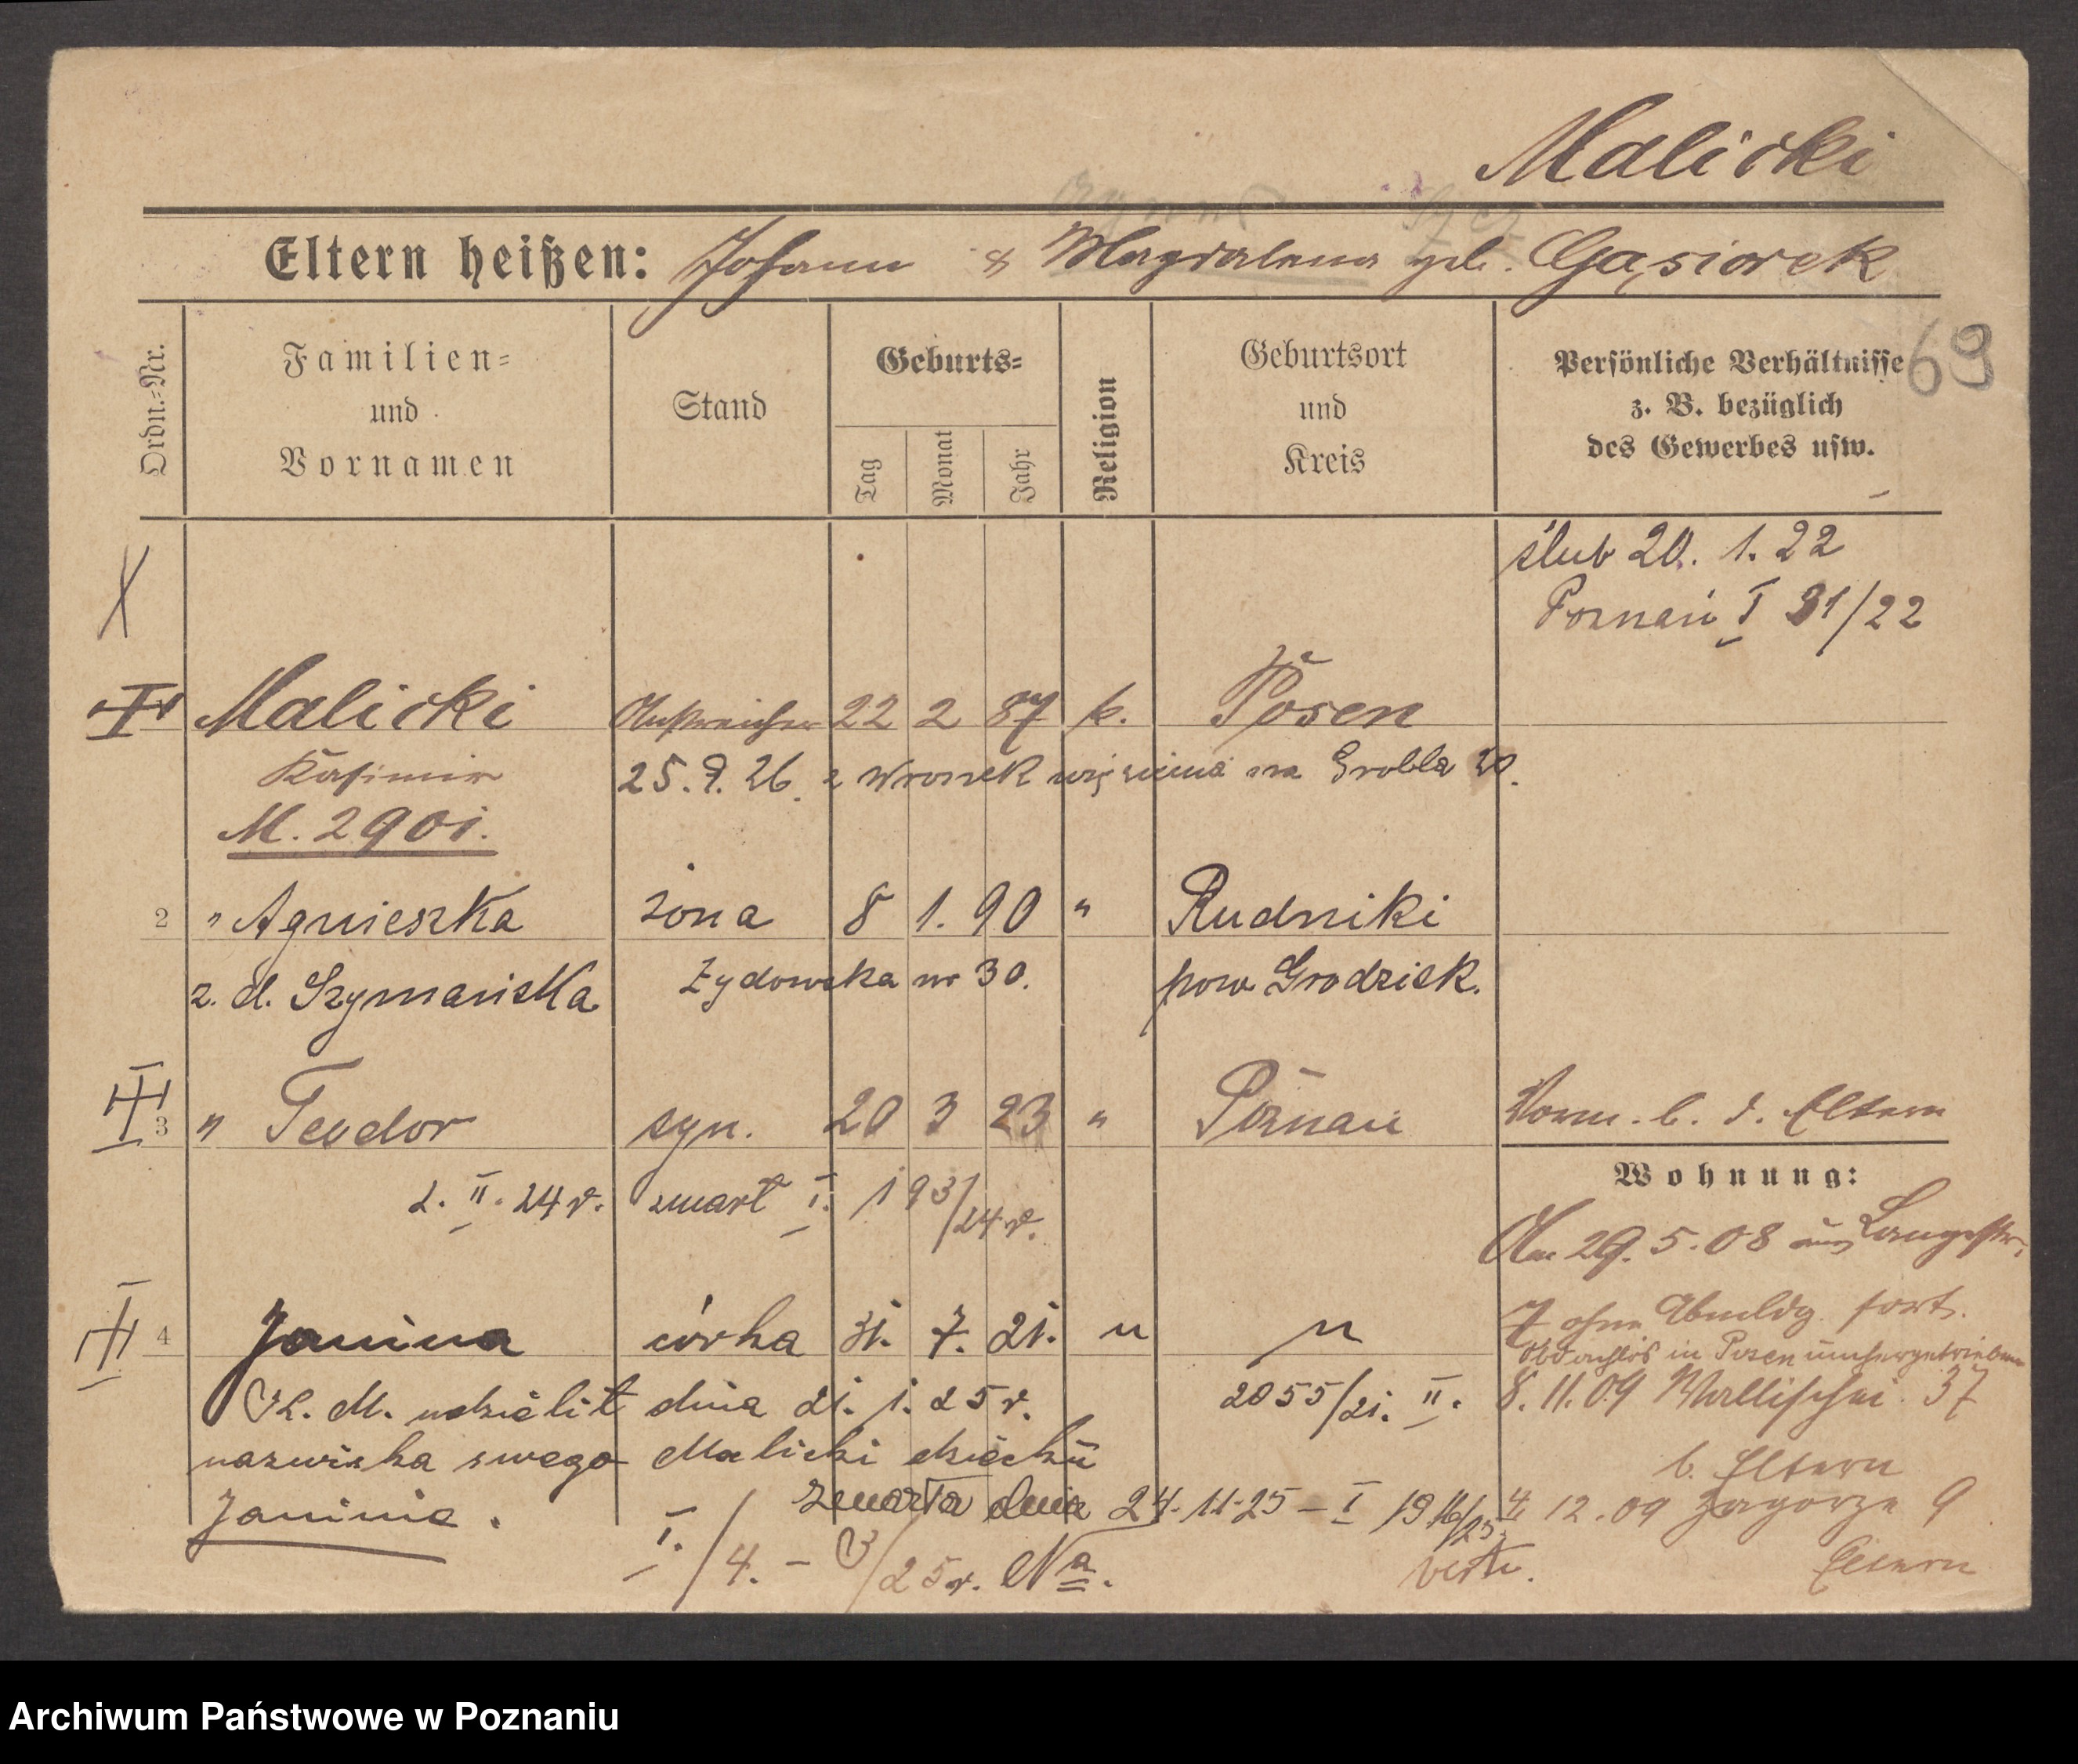 Malicki
Eltern heißen: Johann & Magdalena geb. Gąsiorek
69
Ordn.-Nr.
Familien-
und
Vornamen
Stand
Geburts-
Tag
Monat
Jahr
Religion
Geburtsort
und
Kreis
Persönliche Verhältnisse
z. B. bezüglich
des Gewerbes usw.
ślub 20. 1. 22
Poznań I 31/22
Malicki Anstreicher 22 2 87 k. Posen
Kasimir 25. 9. 26. z Wronek więzienia na Grobla 20.
M. 2901.
2 " Agnieszka żona 8 1. 90 " Rudniki
z. d. Szymańska Żydowska nr 30. pow Grodzisk.
3 " Teodor syn. 20 3 23 " Poznań Vorm. b. d. Eltern
2. II. 24 r. zmarł I. 193/24 r.
Wohnung:
Am 29. 5. 08 aus Langestr.
7 ohne Abmeldg. fort.
4 Janina córka 31. 7. 21. " "
Obdachlos in Posen umhergetrieben
K. M. udzielił dnia 21. 1. 25 r. 2055/21. II.
8. 11. 09 Wallischei 37
nazwiska swego Malicki dziecku
b. Eltern
Janinie.
zmarła dnia 24. 11. 25 – I 1916/25.
4. 12. 09 Zagorze 9
Eltern
I./4. – /25 r. Na.
verte.
Archiwum Państwowe w Poznaniu